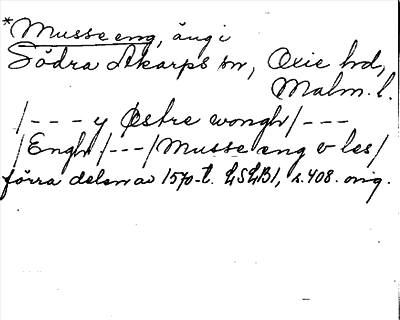 *Musse eng, äng i
Södra Åkarps sn, Oxie hd,
Malm. l.
/--- y Østre wongh/---
/Engh/---/Musse eng v les/
förra delen av 1570-t. LSLB1, s. 408. orig.